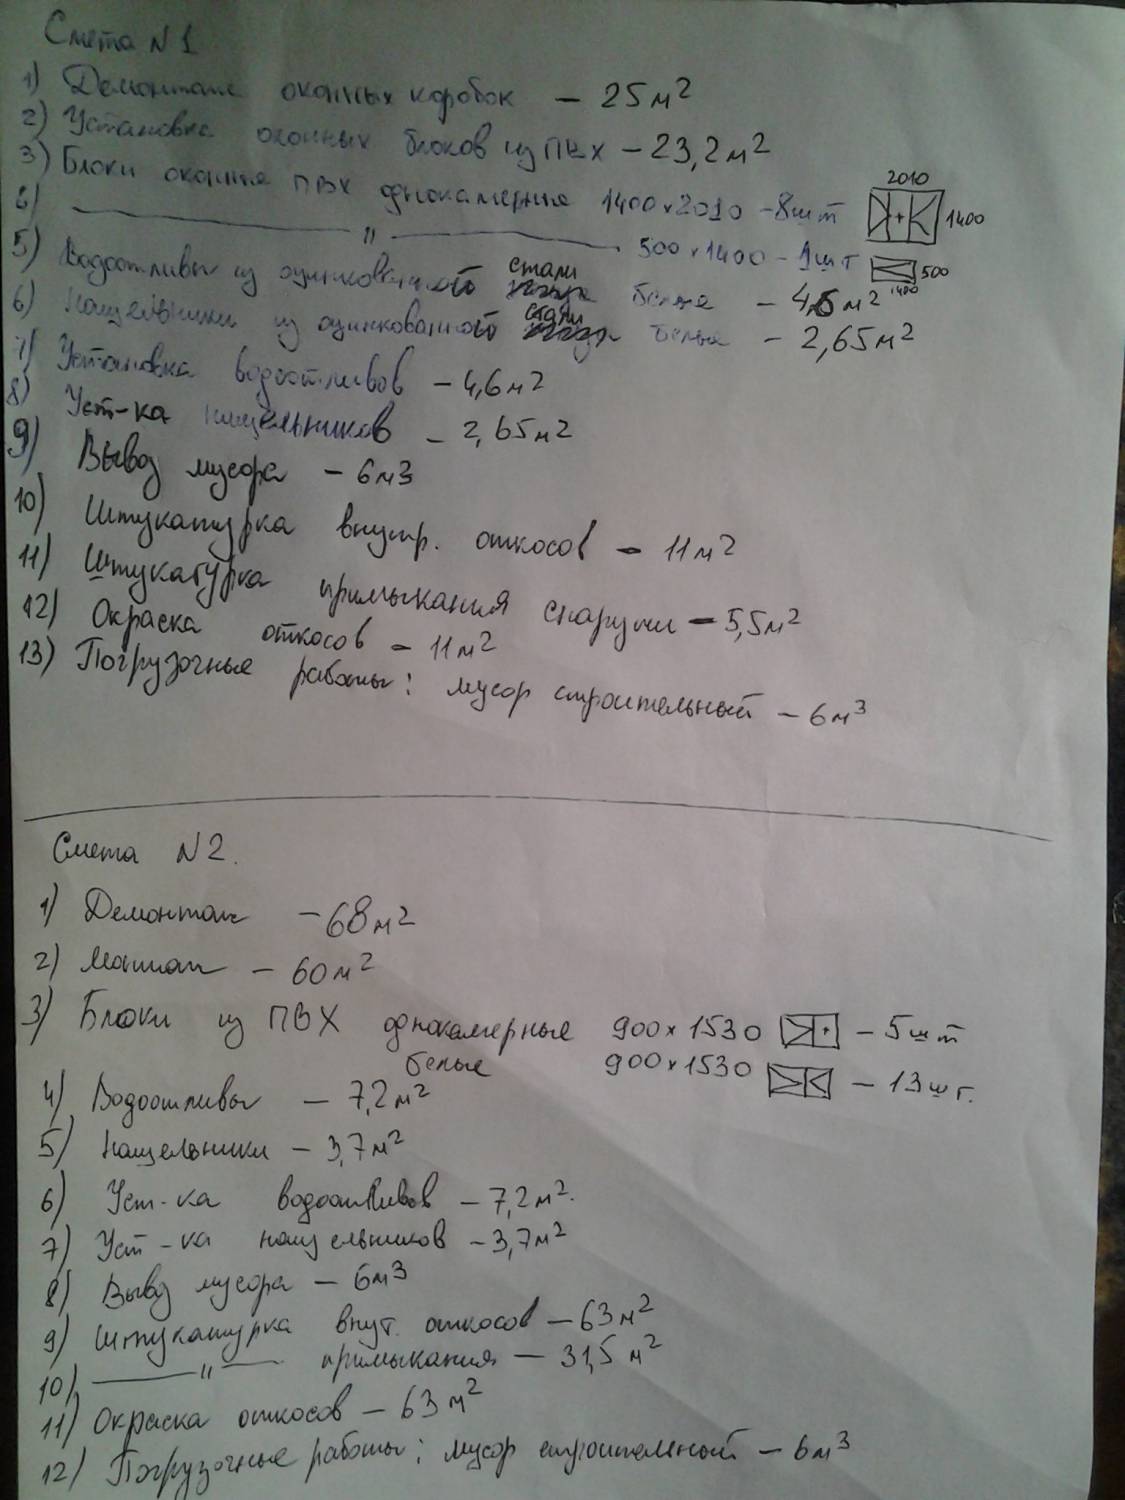 Смета N 1
1) Демонтаж оконных коробок – 25 м²
2) Установка оконных блоков из ПВХ – 23,2 м²
3) Блоки оконные ПВХ однокамерные 1400 x 2010 – 8 шт
2010
1400
4) —— " —— 500 x 1400 – 1 шт
500
1400
5) Водоотливы из оцинкованной стали белые – 4,6 м²
6) Нащельники из оцинкованной стали белые – 2,65 м²
7) Установка водоотливов – 4,6 м²
8) Уст-ка нащельников – 2,65 м²
9) Вывоз мусора – 6 м3
10) Штукатурка внутр. откосов – 11 м²
11) Штукатурка примыкания снаружи – 5,5 м²
12) Окраска откосов – 11 м²
13) Погрузочные работы: мусор строительный – 6 м³
Смета N 2.
1) Демонтаж – 68 м²
2) Монтаж – 60 м²
3) Блоки из ПВХ однокамерные 900 x 1530 – 5 шт
белые 900 x 1530 – 13 шт.
4) Водоотливы – 7,2 м²
5) Нащельники – 3,7 м²
6) Уст-ка водоотливов – 7,2 м².
7) Уст-ка нащельников – 3,7 м²
8) Вывоз мусора – 6 м3
9) Штукатурка внут. откосов – 63 м²
10) —— " —— примыкания – 31,5 м²
11) Окраска откосов – 63 м²
12) Погрузочные работы: мусор строительный – 6 м³